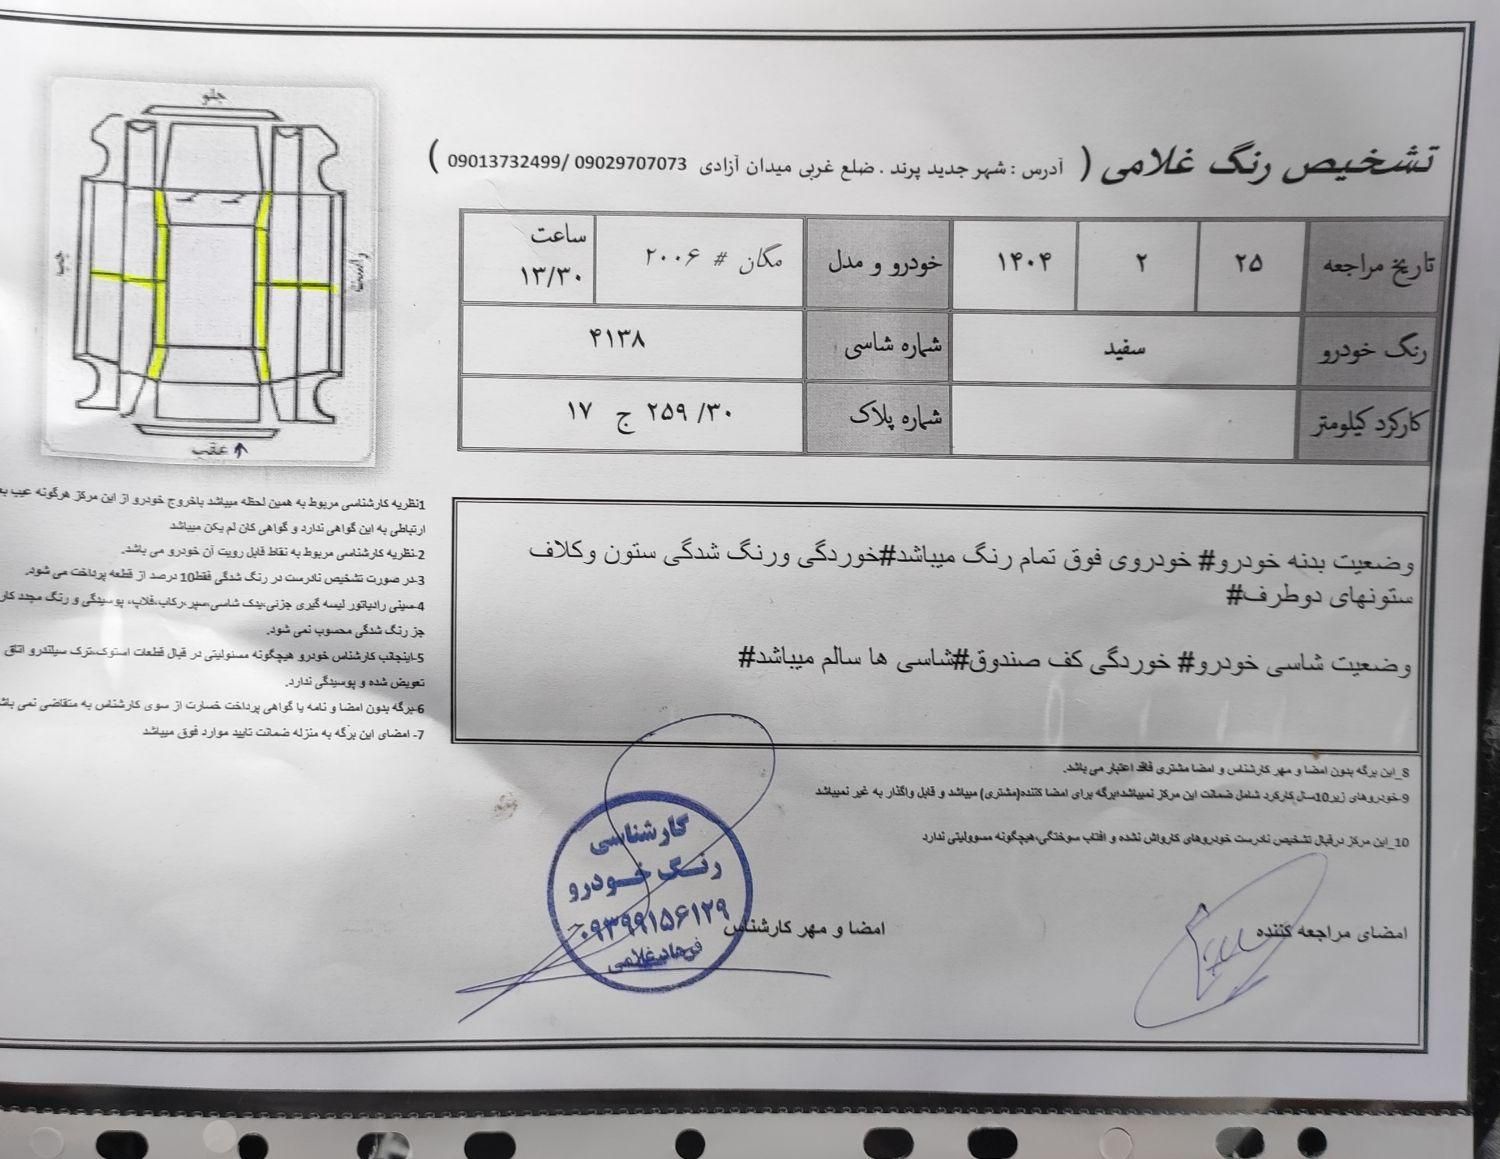 تشخیص رنگ غلامی ( آدرس : شهر جدید پرند . ضلع غربی میدان آزادی 09029707073 /09013732499 )
تاریخ مراجعه ۲۵ ۲ ۱۴۰۴ خودرو و مدل مگان # ۲۰۰۶ ساعت ۱۳/۳۰
رنگ خودرو سفید شماره شاسی ۴۱۳۸
کارکرد کیلومتر شماره پلاک ۳۰/ ۲۵۹ ج ۱۷
جلو
راست
چپ
عقب
وضعیت بدنه خودرو# خودروی فوق تمام رنگ میباشد#خوردگی ورنگ شدگی ستون وکلاف
ستونهای دوطرف#
وضعیت شاسی خودرو# خوردگی کف صندوق#شاسی ها سالم میباشد#
1نظریه کارشناسی مربوط به همین لحظه میباشد باخروج خودرو از این مرکز هرگونه عیب
ارتباطی به این گواهی ندارد و گواهی کان لم یکن میباشد
2-نظریه کارشناسی مربوط به نقاط قابل رویت آن خودرو می باشد.
3-در صورت تشخیص نادرست در رنگ شدگی فقط10 درصد از قطعه پرداخت می شود.
4-سینی رادیاتور لیسه گیری جزئی،یدک شاسی،سپر،رکاب،فلاپ، پوسیدگی و رنگ مجدد کار
جز رنگ شدگی محسوب نمی شود.
5-اینجانب کارشناس خودرو هیچگونه مسئولیتی در قبال قطعات استوک،ترک سیلندرو اتاق
تعویض شده و پوسیدگی ندارد.
6-برگه بدون امضا و نامه یا گواهی پرداخت خسارت از سوی کارشناس به متقاضی نمی
7- امضای این برگه به منزله ضمانت تایید موارد فوق میباشد
8_این برگه بدون امضا و مهر کارشناس و امضا مشتری فاقد اعتبار می باشد.
9-خودروهای زیر10سال کارکرد شامل ضمانت این مرکز نمیباشد،برگه برای امضا کننده(مشتری) میباشد و قابل واگذار به غیر نمیباشد
10_این مرکز درقبال تشخیص نادرست خودروهای کارواش نشده و افتاب سوختگی،هیچگونه مسوولیتی ندارد
امضای مراجعه کننده
امضا و مهر کارشناس
کارشناسی
رنگ خودرو
۰۹۳۹۹۱۵۶۱۲۹
فرهاد غلامی